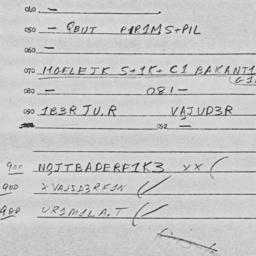 060 —
050 — QBUT P1P1MS+PIL
060 —
070 MOFLETK S+1K+ C1 BAKANT1
080 — 081 —
090 1B3R JU.R VAJUD3R
092 —
900 NOJTBADERF1K3 XX (
900 XVAJSD3RF1N (/
900 UR1M1LA.T (/